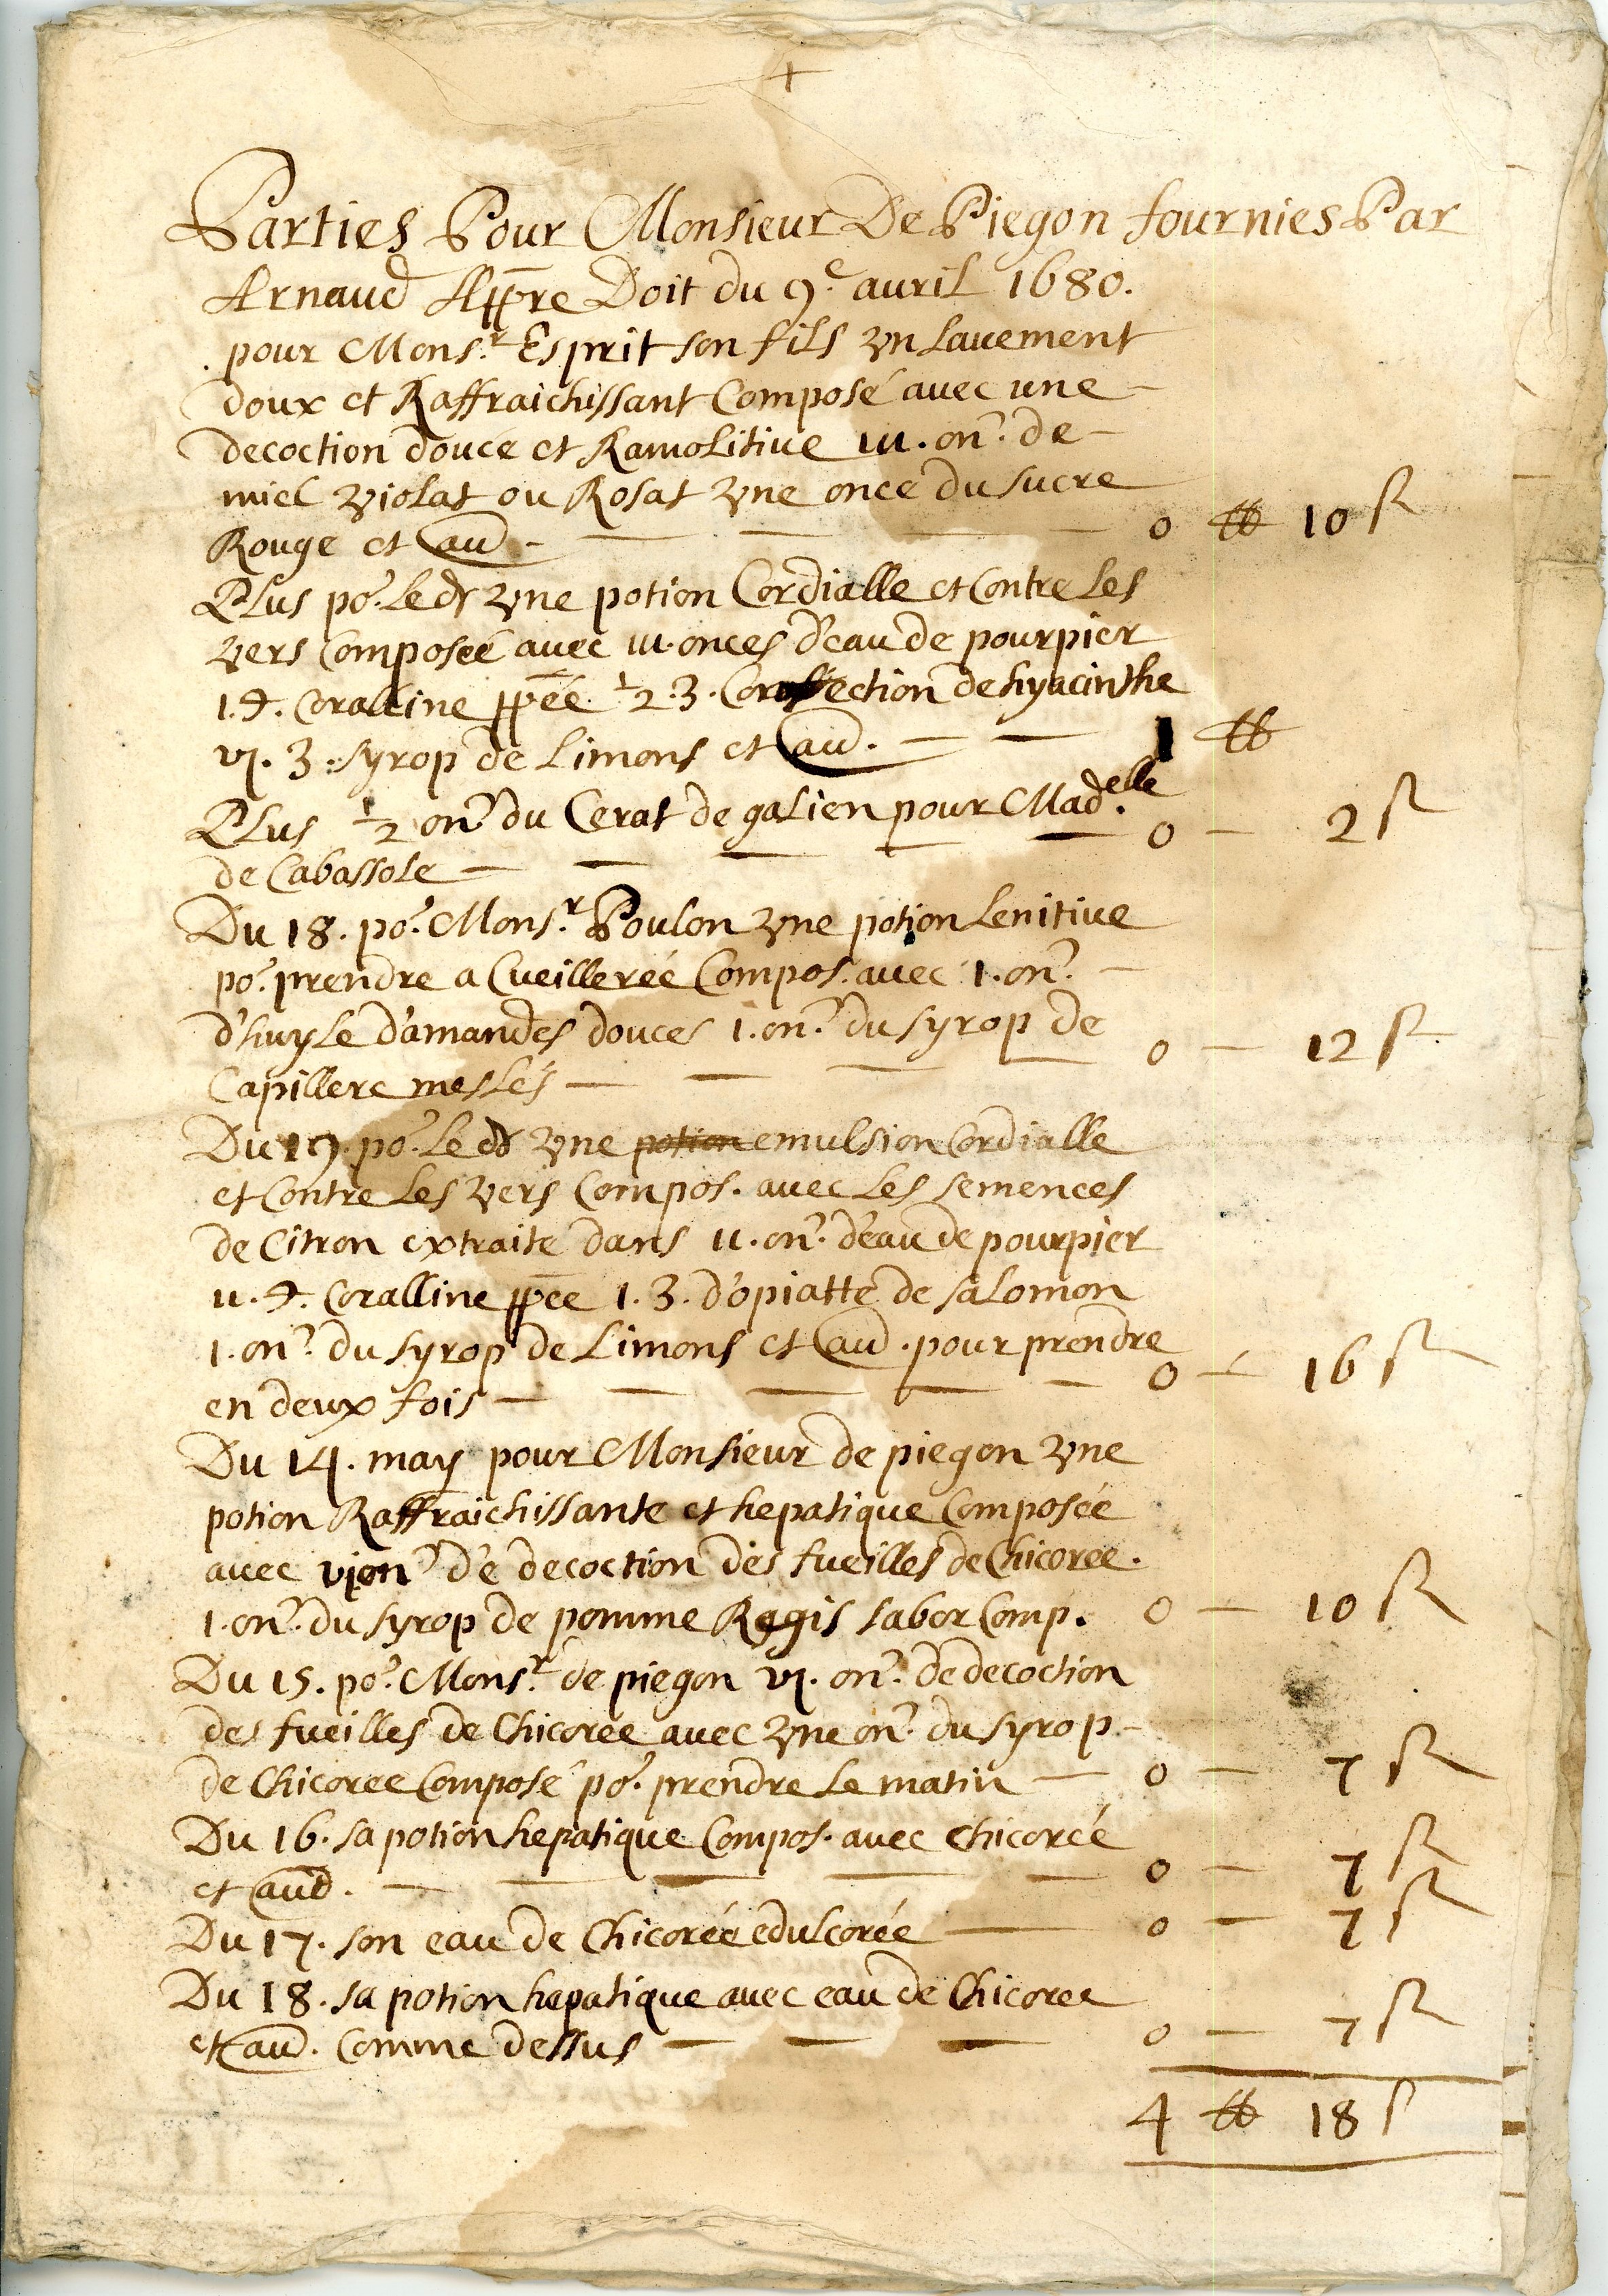 Parties Pour Monsieur De Piegon fournies Par
Arnaud App̄re Doit du 9e. auril 1680.
pour Mons.r Esprit son fils vn Lauement
doux et Raffraichissant Composé auec une
decoction douce et Ramolitiue iii. on.e de
miel violat ou Rosat vne once du sucre
Rouge et au. 0 ₶ 10 ſ
Plus po.r Led. vne potion Cordialle et Contre Les
vers Composeé auec iii. onces d'eau de pourpier
1. ℈. Coralline pp̄éé ½ ʒ. Confection de hyacinthe
vi. ʒ. syrop de Limons et au. 1 ₶
Plus ½ on.e du Cerat de galien pour Mad.elle
de Cabassole 0 2 ſ
Du 18. po.r Mons.r Poulon vne potion Lenitiue
po.r prendre a Cueillereé Compos. auec 1. on.e
d'huyle d'amandes douces 1. on.e du syrop de
Capillere meslés 0 12 ſ
Du 19. po.r Led. vne potion emulsion Cordialle
et Contre Les vers Compos. auec Les semences
de Citron extraite dans ii. on.e d'eau de pourpier
ii. ℈. Coralline pp̄ée 1. ʒ. d'opiatte de salomon
1. on.e du syrop de Limons et au. pour prendre
en deux fois 0 16 ſ
Du 14. may pour Monsieur de piegon vne
potion Raffraichissante et hepatique Composée
auec vi on.e de decoction des fueilles de Chicorée.
1. on.e du syrop de pomme Regis sabor Comp. 0 10 ſ
Du 15. po.r Mons.r de piegon vi. on.e de decoction
des fueilles de Chicorée auec vne on.e du syrop
de Chicorée Composé po.r prendre Le matin 0 7 ſ
Du 16. sa potion hepatique Compos. auec Chicoreé
et aud. 0 7 ſ
Du 17. son eau de Chicorée edulcorée 0 7 ſ
Du 18. sa potion hepatique auec eau de Chicoree
et au. Comme dessus 0 7 ſ
4 ₶ 18 ſ